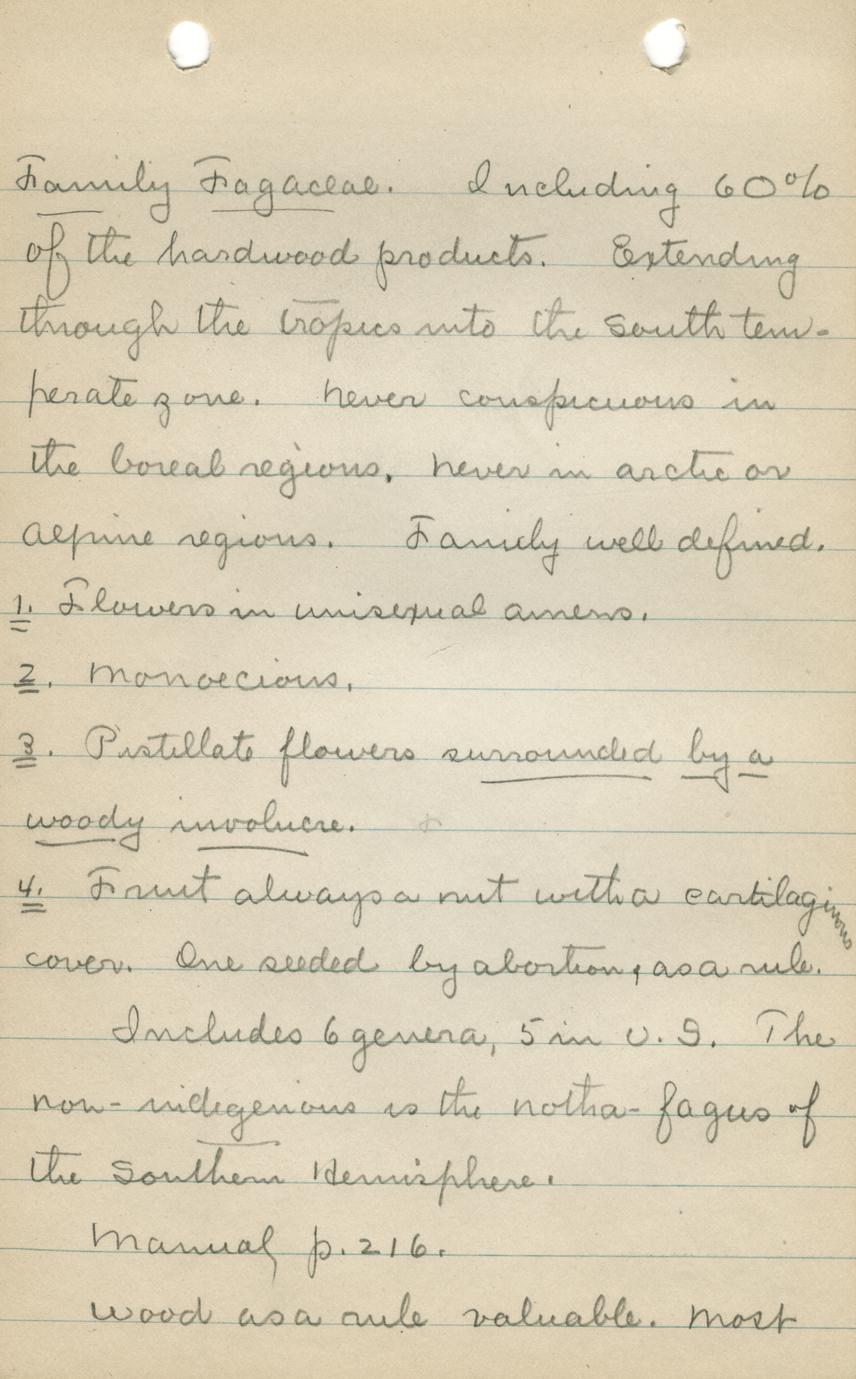 Family Fagaceae. Including 60%
of the hardwood products. Extending
through the tropics into the South tem-
perate zone. Never conspicuous in
the boreal regions, never in arctic or
alpine regions. Family well defined.
1. Flowers in unisexual amens.
2. Monoecious.
3. Pistillate flowers surrounded by a
woody involucre.
4. Fruit always a nut with a cartilaginous
cover. One seeded by abortion, as a rule.
Includes 6 genera, 5 in U.S. The
non-indegenious is the notha-fagus of
the Southern Hemisphere.
Manual, p. 216.
Wood as a rule valuable. Most